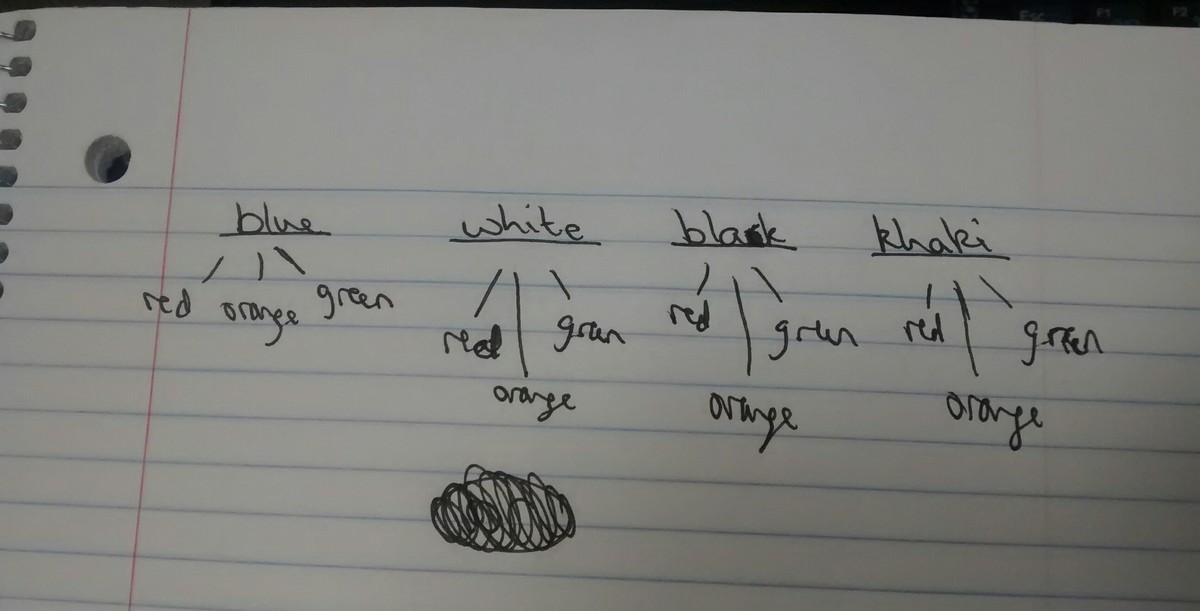 blue white black khaki
red orange green red green red green red green
orange orange orange